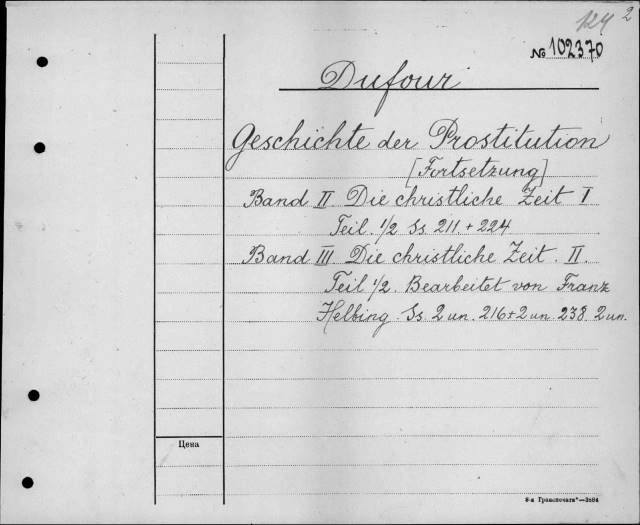 124 2
№ 102370
Dufour
Geschichte der Prostitution
[Fortsetzung]
Band II Die christliche Zeit I
Teil. 1/2 Ss. 211 + 224
Band III Die christliche Zeit. II.
Teil 1/2. Bearbeitet von Franz
Helbing. Ss. 2 un. 216+2 un. 238. 2 un.
Цена
8-я Транспечати"—3884